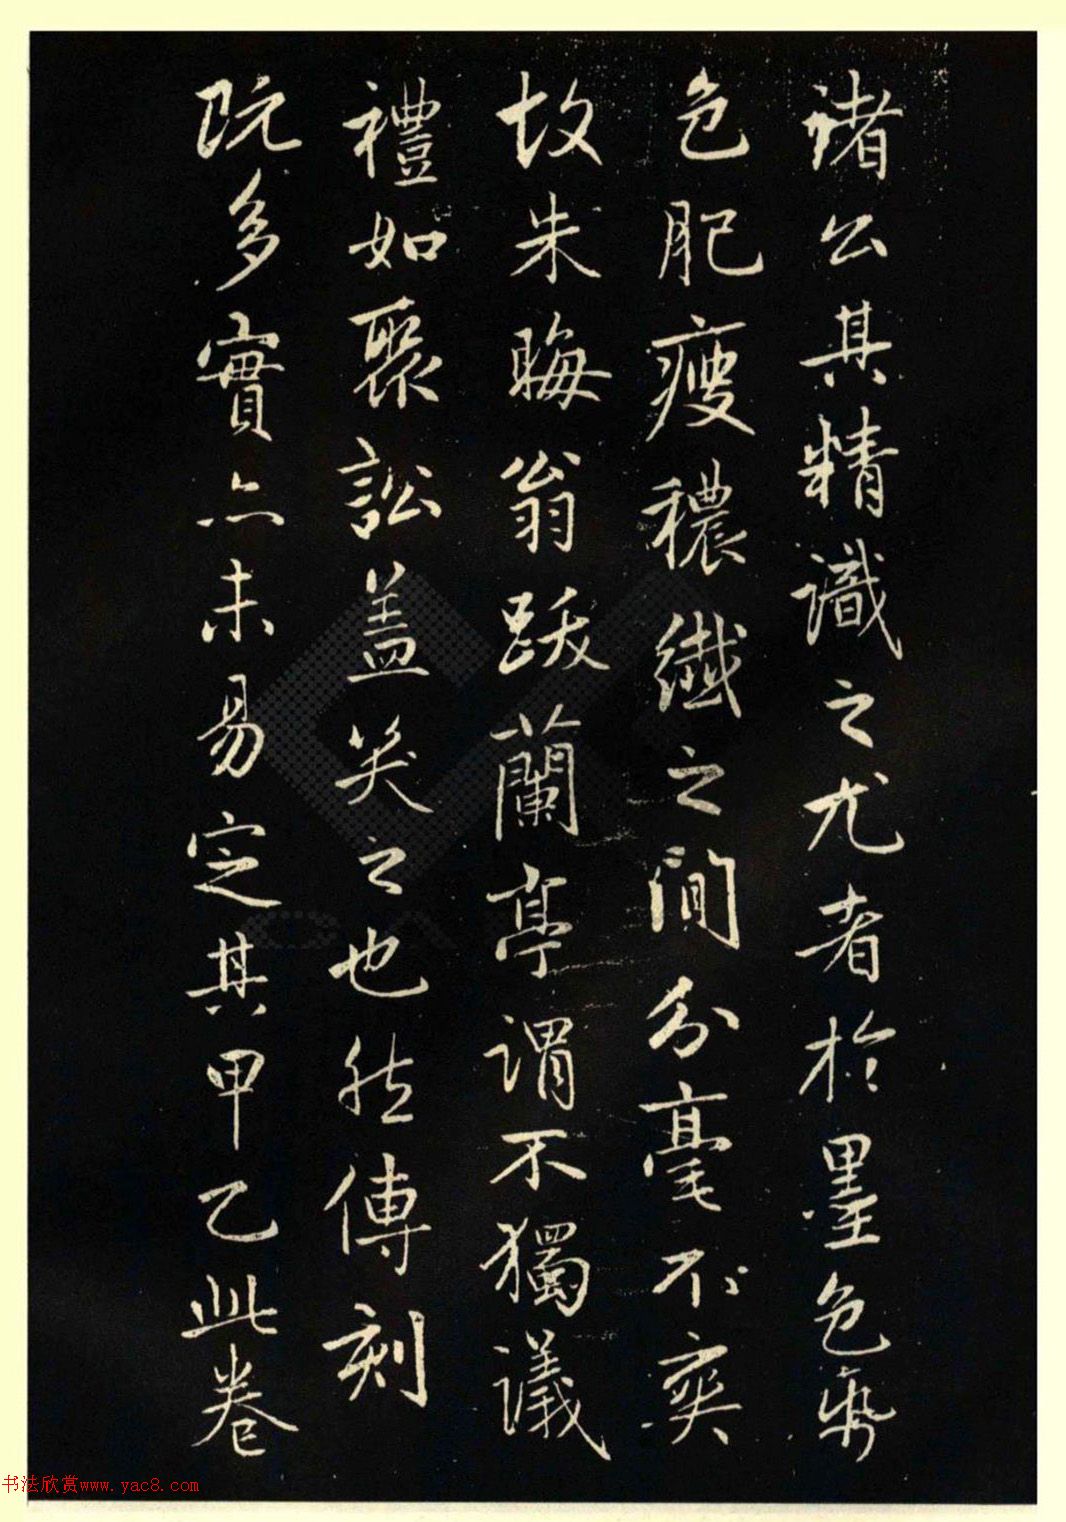 諸公其精識之尤者於墨色紙
色肥瘦穠纖之間分毫不爽
故朱晦翁跋蘭亭謂不獨議
禮如聚訟盖笑之也然傳刻
既多實亦未易定其甲乙此卷
书法欣赏www.yac8.com